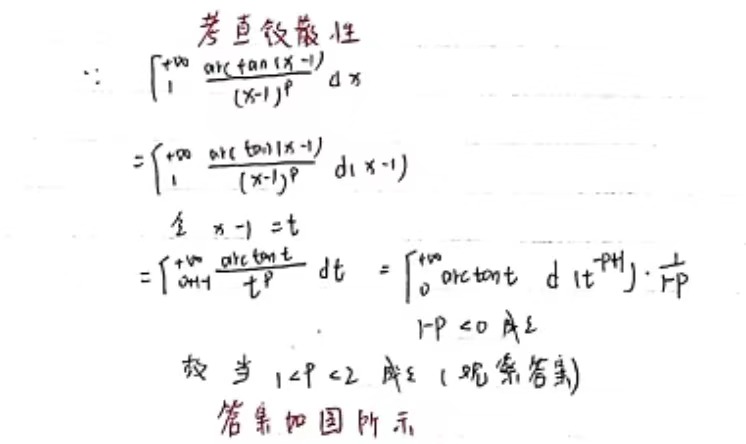 考查敛散性
∵ ∫₁^{+∞} arctan(x-1)/(x-1)^p dx
= ∫₁^{+∞} arctan(x-1)/(x-1)^p d(x-1)
令 x-1 = t
= ∫^{+∞} arctan t/t^p dt = ∫₀^{+∞} arctan t d(t^{-p+1})·1/(1-p)
1-p <0 成立
故 当 1<p<2 成立 (观察答案)
答案如图所示